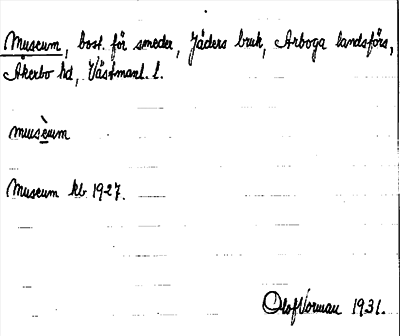 Museum, bost. för smeder, Jäders bruk, Arboga landsförs,
Åkerbo hd, Västmanl. l.
musèum
Museum kb 1927.
Olof Norman 1931.